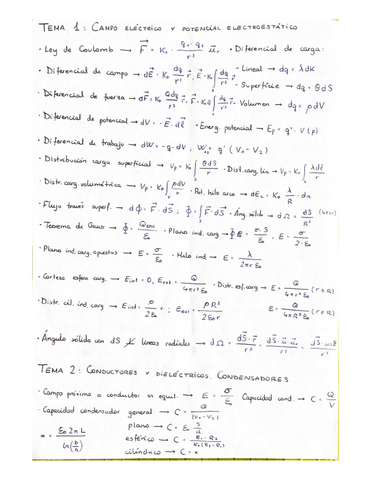 TEMA 1: CAMPO ELÉCTRICO Y POTENCIAL ELECTROESTÁTICO
· Ley de Coulomb → F = K₀ · q₁·q₂/r² · u⃗r · Diferencial de carga:
- Lineal → dq = λ dl
- Superficie → dq = σ dS
- Volumen → dq = ρ dV
· Diferencial de campo → dE = K₀ dq/r² r⃗; E = K₀ ∫ dq/r² r⃗
· Diferencial de fuerza → dF = K₀ Q dq/r² r⃗; F = K₀ Q ∫ dq/r² r⃗
· Diferencial de potencial → dV = - E⃗ · dl⃗ · Energ. potencial → Ep = q' · V(p)
· Diferencial de trabajo → dW = - q · dV; W = q' (V₁ - V₂)
· Distribución carga superficial → Vp = K₀ ∫ σdS/r · Dist. carg. lin → Vp = K₀ ∫ λdl/r
· Distr. carg. volumétrica → Vp = K₀ ∫ ρdV/r · Hilo arco → dE = K₀ · λ/R · dα
· Flujo través superf. → dϕ = F⃗ · dS⃗; ϕ = ∫ F⃗ · dS⃗ · Áng. sólido → dΩ = dS/R²
· Teorema de Gauss → ϕ = Qenc/ε₀ · Plano ind. carg → ϕ = σ·S/ε₀; E = σ/2·ε₀
· Plano ind. carg. opuestos → E = σ/ε₀ · Hilo ind → E = λ/2πrε₀
· Corteza esfera carg. → Eint = 0, Eext = Q/4πr²ε₀ · Distr. esf. carg → E = Q/4πr²ε₀
· Distr. cil. ind. carg → Eint = ρ/2ε₀ r; Eext = ρR²/2ε₀r
· Ángulo sólido con dS líneas radiales → dΩ = dS⃗·r⃗/r³
TEMA 2: CONDUCTORES Y DIELÉCTRICOS. CONDENSADORES
· Campo próximo a conductor en equil. → E = σ/ε₀ Capacidad cond. → C = Q/V
· Capacidad condensador general → C = Q/(V₁-V₂)
plano → C = ε₀ S/d
esférico → C = R₁·R₂/K₀(R₂-R₁)
cilíndrico → C = *
* = ε₀ 2π L / ln(b/a)